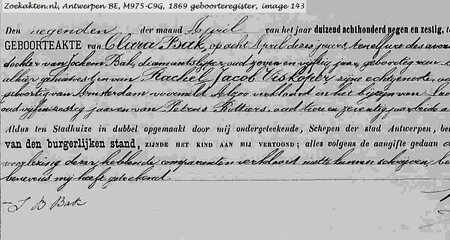 Zoekakten.nl, Antwerpen BE, M975-C9G, 1869 geboorteregister, image 143
Den negenden der maand April van het jaar duizend achthonderd negen en zestig, te
GEBOORTEAKTE van Clara Bak, op acht April dezes jaars, ten elf ure des avonds
dochter van Jochem Bak, diamantslijper oud zeven en vijftig jaren, geboortig van
alhier gehuisvest en van Rachel Jacob Visschper zijne echtgenoote, oud
geboortig van Amsterdam voormeld. Alzoo verklaard in het bijzijn van
oud vijf en zestig jaren en van Petrus Rottiers, oud twee en zeventig jaren beide
Aldus ten Stadhuize in dubbel opgemaakt door mij ondergeteekende, Schepen der stad Antwerpen,
van den burgerlijken stand, ZIJNDE HET KIND AAN MIJ VERTOOND; alles volgens de aangifte gedaan
voorlezing dezer hebbende comparanten verklaard niet te kunnen schrijven,
benevens mij heeft geteekend.
J B Bak